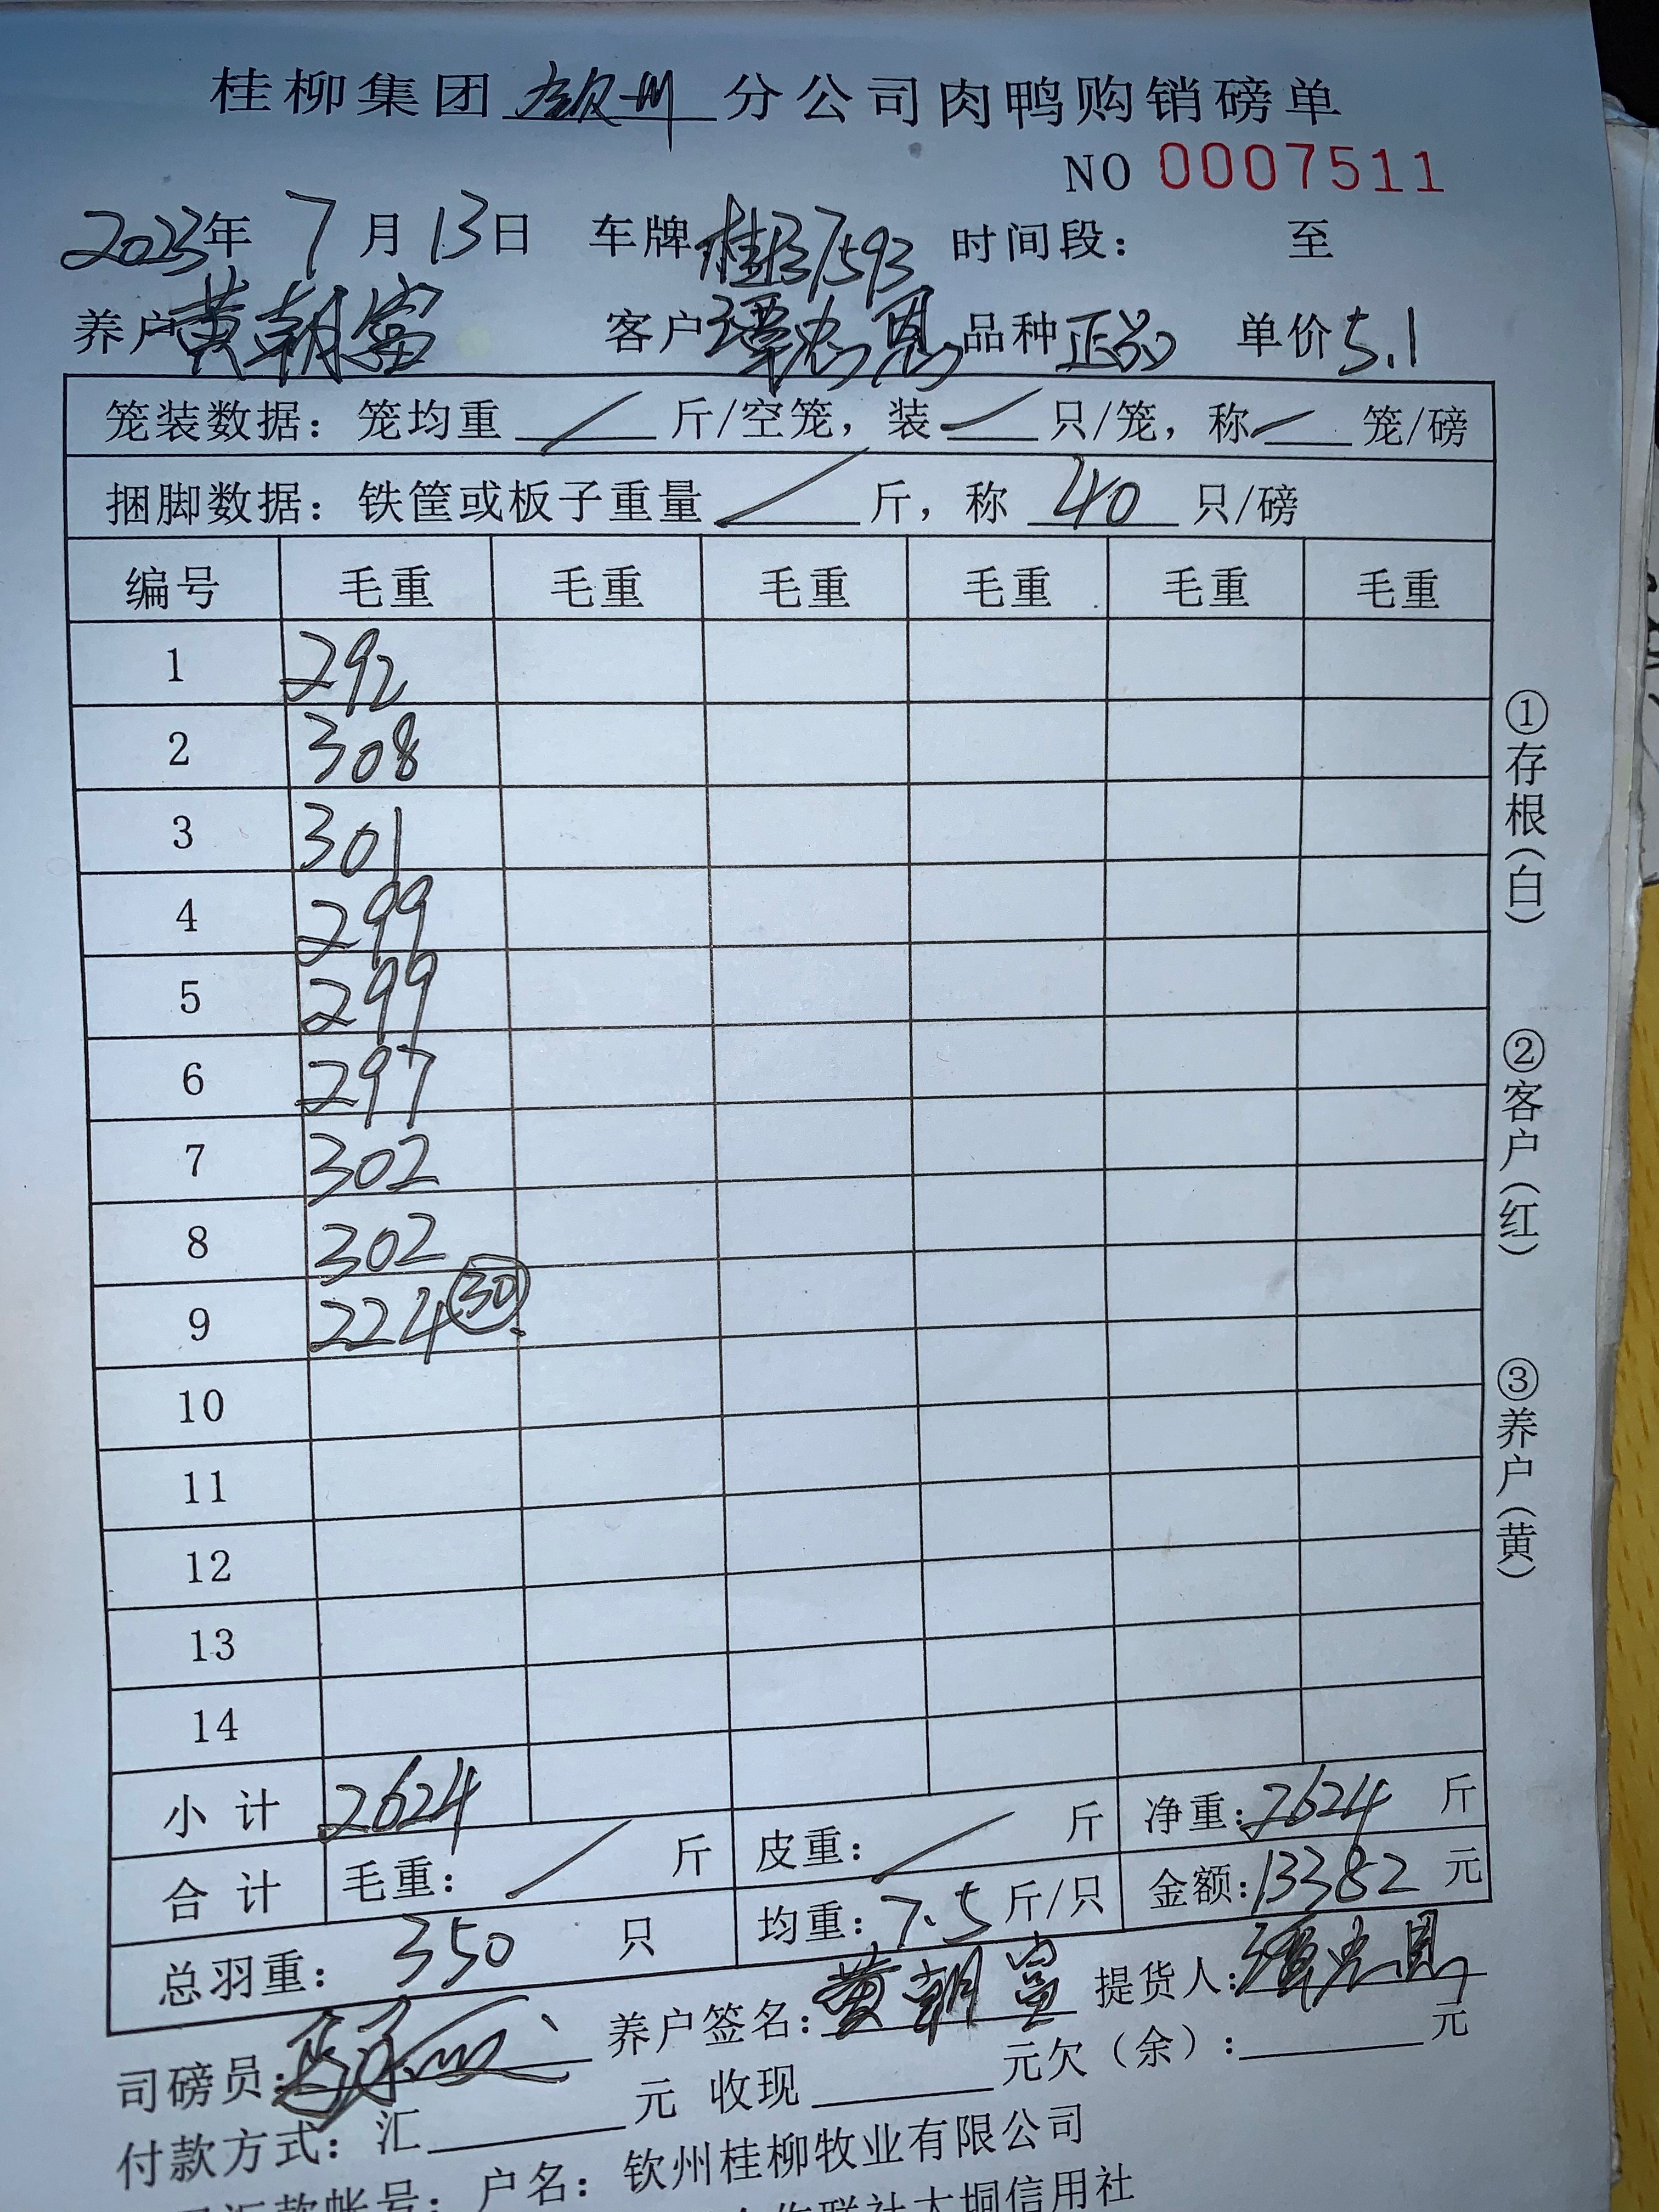 桂柳集团 钦州 分公司肉鸭购销磅单
NO 0007511
2023年 7 月 13日 车牌 桂 37593 时间段： 至
养户 黄朝富 客户 谭忠恩 品种 正品 单价 5.1
笼装数据：笼均重 / 斤/空笼，装 / 只/笼，称 / 笼/磅
捆脚数据：铁筐或板子重量 / 斤，称 40 只/磅
编号 毛重 毛重 毛重 毛重 毛重 毛重
1 292
2 308
3 301
4 299
5 299
6 297
7 302
8 302
9 224 30
10
11
12
13
14
小 计 2624
合 计 毛重： / 斤 皮重： / 斤 净重：2624 斤
总羽重： 350 只 均重：7.5 斤/只 金额：13382 元
司磅员： 养户签名：黄朝富 提货人：谭忠恩
付款方式：汇 元 收现 元欠（余）： 元
汇款帐号：户名：钦州桂柳牧业有限公司
联社大垌信用社
①存根（白）
②客户（红）
③养户（黄）